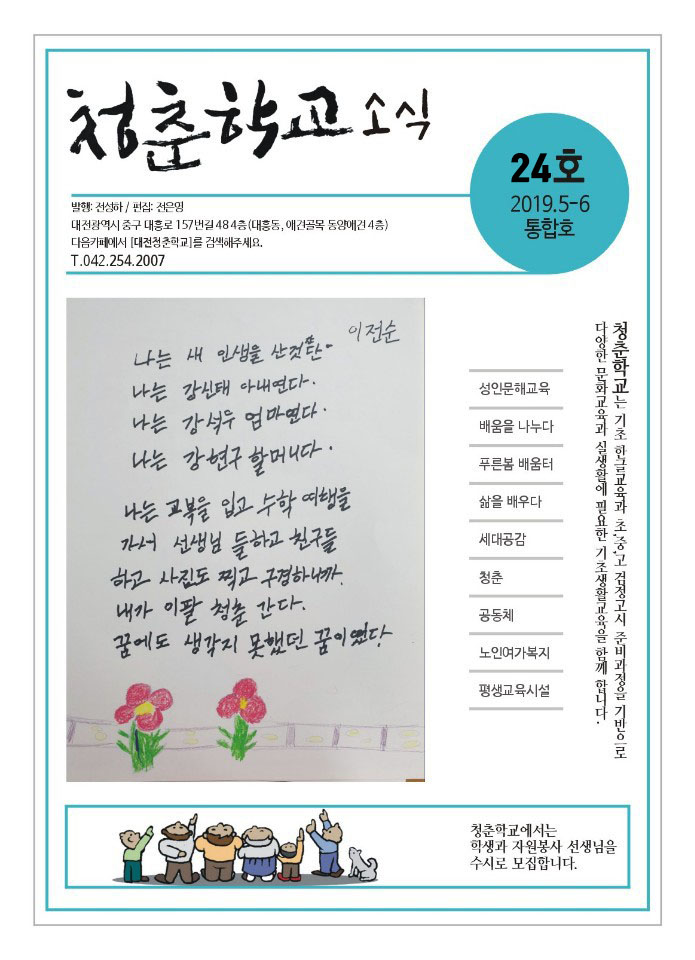 청춘학교 소식
24호
2019.5-6
통합호
발행: 전성하 / 편집: 전은영
대전광역시 중구 대흥로 157번길 48 4층(대흥동, 애견골목 동양애견 4층)
다음카페에서 [대전청춘학교]를 검색해주세요.
T.042.254.2007
이전순
나는 새 인생을 산것 같다.
나는 강신태 아내연다.
나는 강석우 엄마연다.
나는 강현구 할머니다.
나는 교복을 입고 수학 여행을
가서 선생님 들하고 친구들
하고 사진도 찍고 구경하니까.
내가 이팔 청춘 간다.
꿈에도 생각지 못했던 꿈이였다
성인문해교육
배움을 나누다
푸른봄 배움터
삶을 배우다
세대공감
청춘
공동체
노인여가복지
평생교육시설
청춘학교는 기초 한글교육과 초.중.고 검정고시 준비과정을 기반으로
다양한 문화교육과 실생활에 필요한 기초생활교육을 함께 합니다.
청춘학교에서는
학생과 자원봉사 선생님을
수시로 모집합니다.